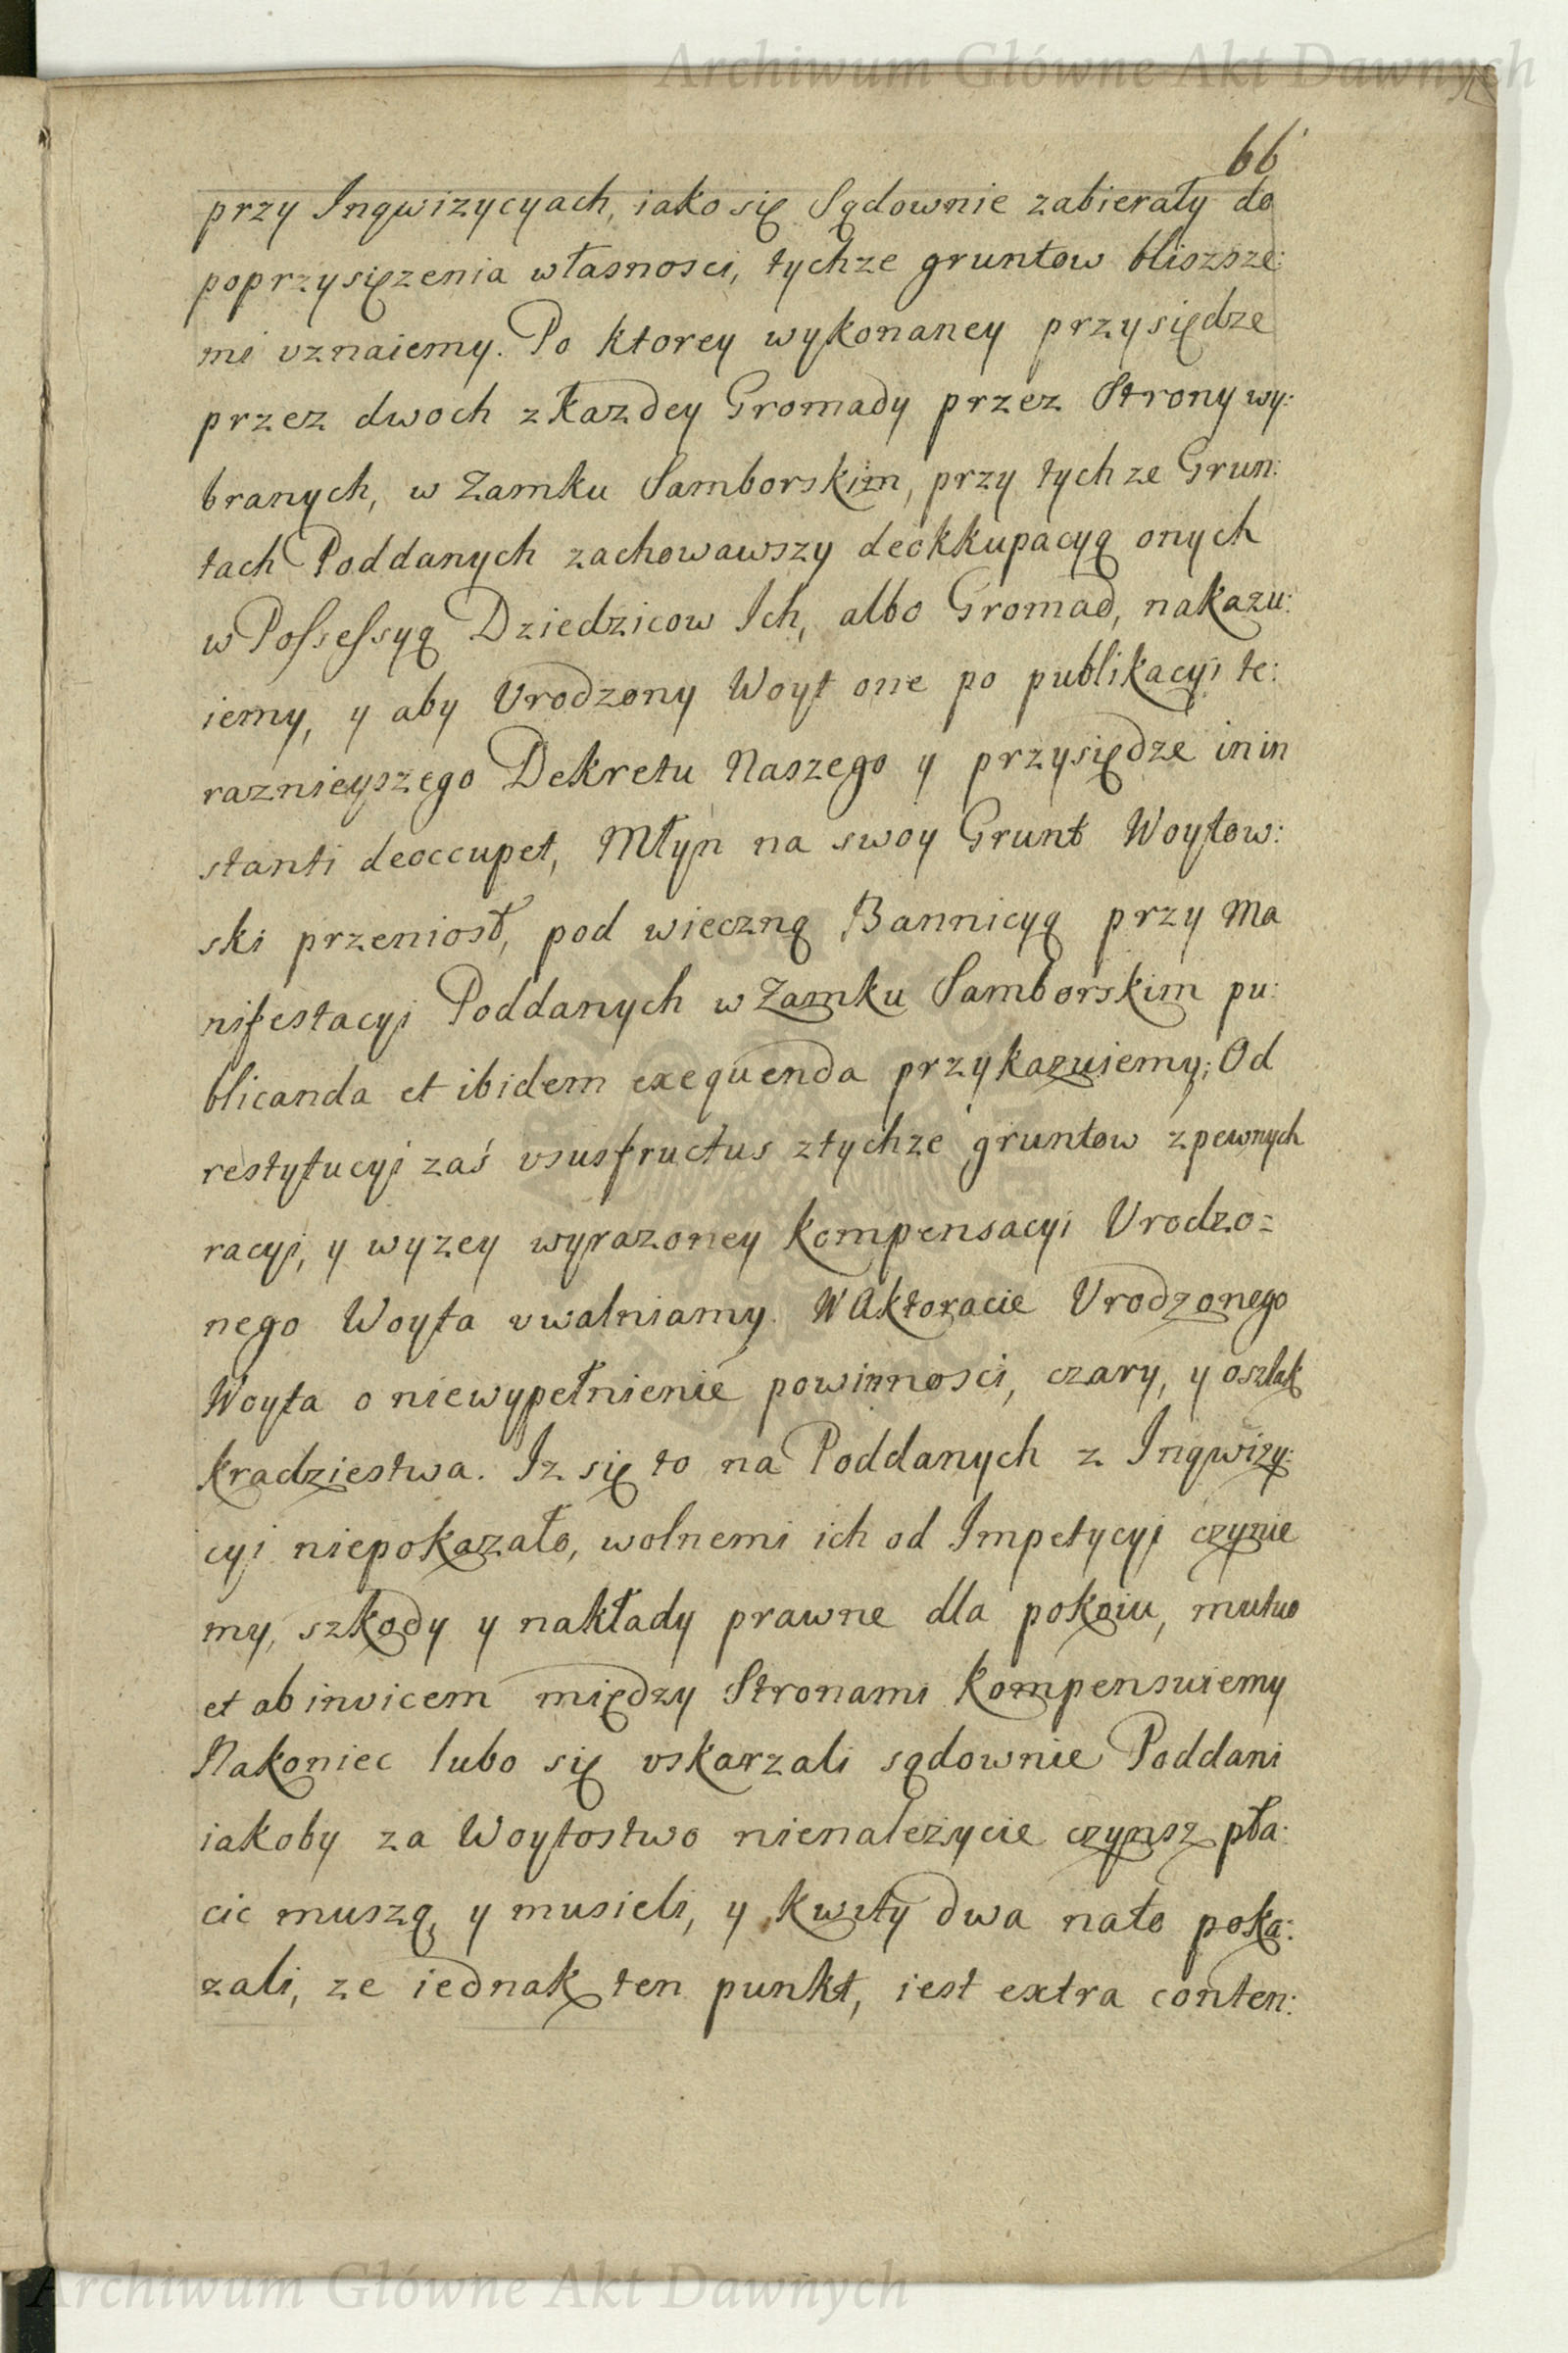 Archiwum Główne Akt Dawnych
66
przy Inqwizycyach, iako się Sądownie zabierały do
poprzysięzenia własnosci, tychze gruntow bliszsze:
mi uznaiemy. Po ktorey wykonaney przysiędze
przez dwoch z Kazdey Gromady przez Strony wy:
branych, w Zamku Samborskim, przy tych ze Grun:
tach Poddanych zachowawszy deokkupacyą onych
w Possessyą Dziedzicow Ich, albo Gromad, nakazu:
iemy, y aby Urodzony Woyt one po publikacyi te:
raznieyszego Dekretu Naszego y przysiędze in in
stanti deoccupet, Młyn na swoy Grunt Woytow:
ski przeniosł, pod wieczną Bannicyą przy Ma
nifestacyi Poddanych w Zamku Samborskim pu:
blicanda et ibidem exequenda przykazuiemy; Od
restytucyi zaś ususfructus z tychze gruntow z pewnych
racyi, y wyzey wyrazoney kompensacyi Urodzo=
nego Woyta uwalniamy. W Aktoracie Urodzonego
Woyta o niewypełnienie powinnosci, czary, y oszlak
kradziestwa. Iz się to na Poddanych z Inqwizy:
cyi niepokazało, wolnemi ich od Impetycyi czynie
my, szkody y nakłady prawne dla pokoiu, mutuo
et ab invicem między Stronami kompensuiemy
Nakoniec lubo się uskarzali sądownie Poddani
iakoby za Woytostwo nienależycie czynsz pła:
cic muszą, y musieli, y kwity dwa nato poka:
zali, ze iednak ten punkt, iest extra conten:
Archiwum Główne Akt Dawnych